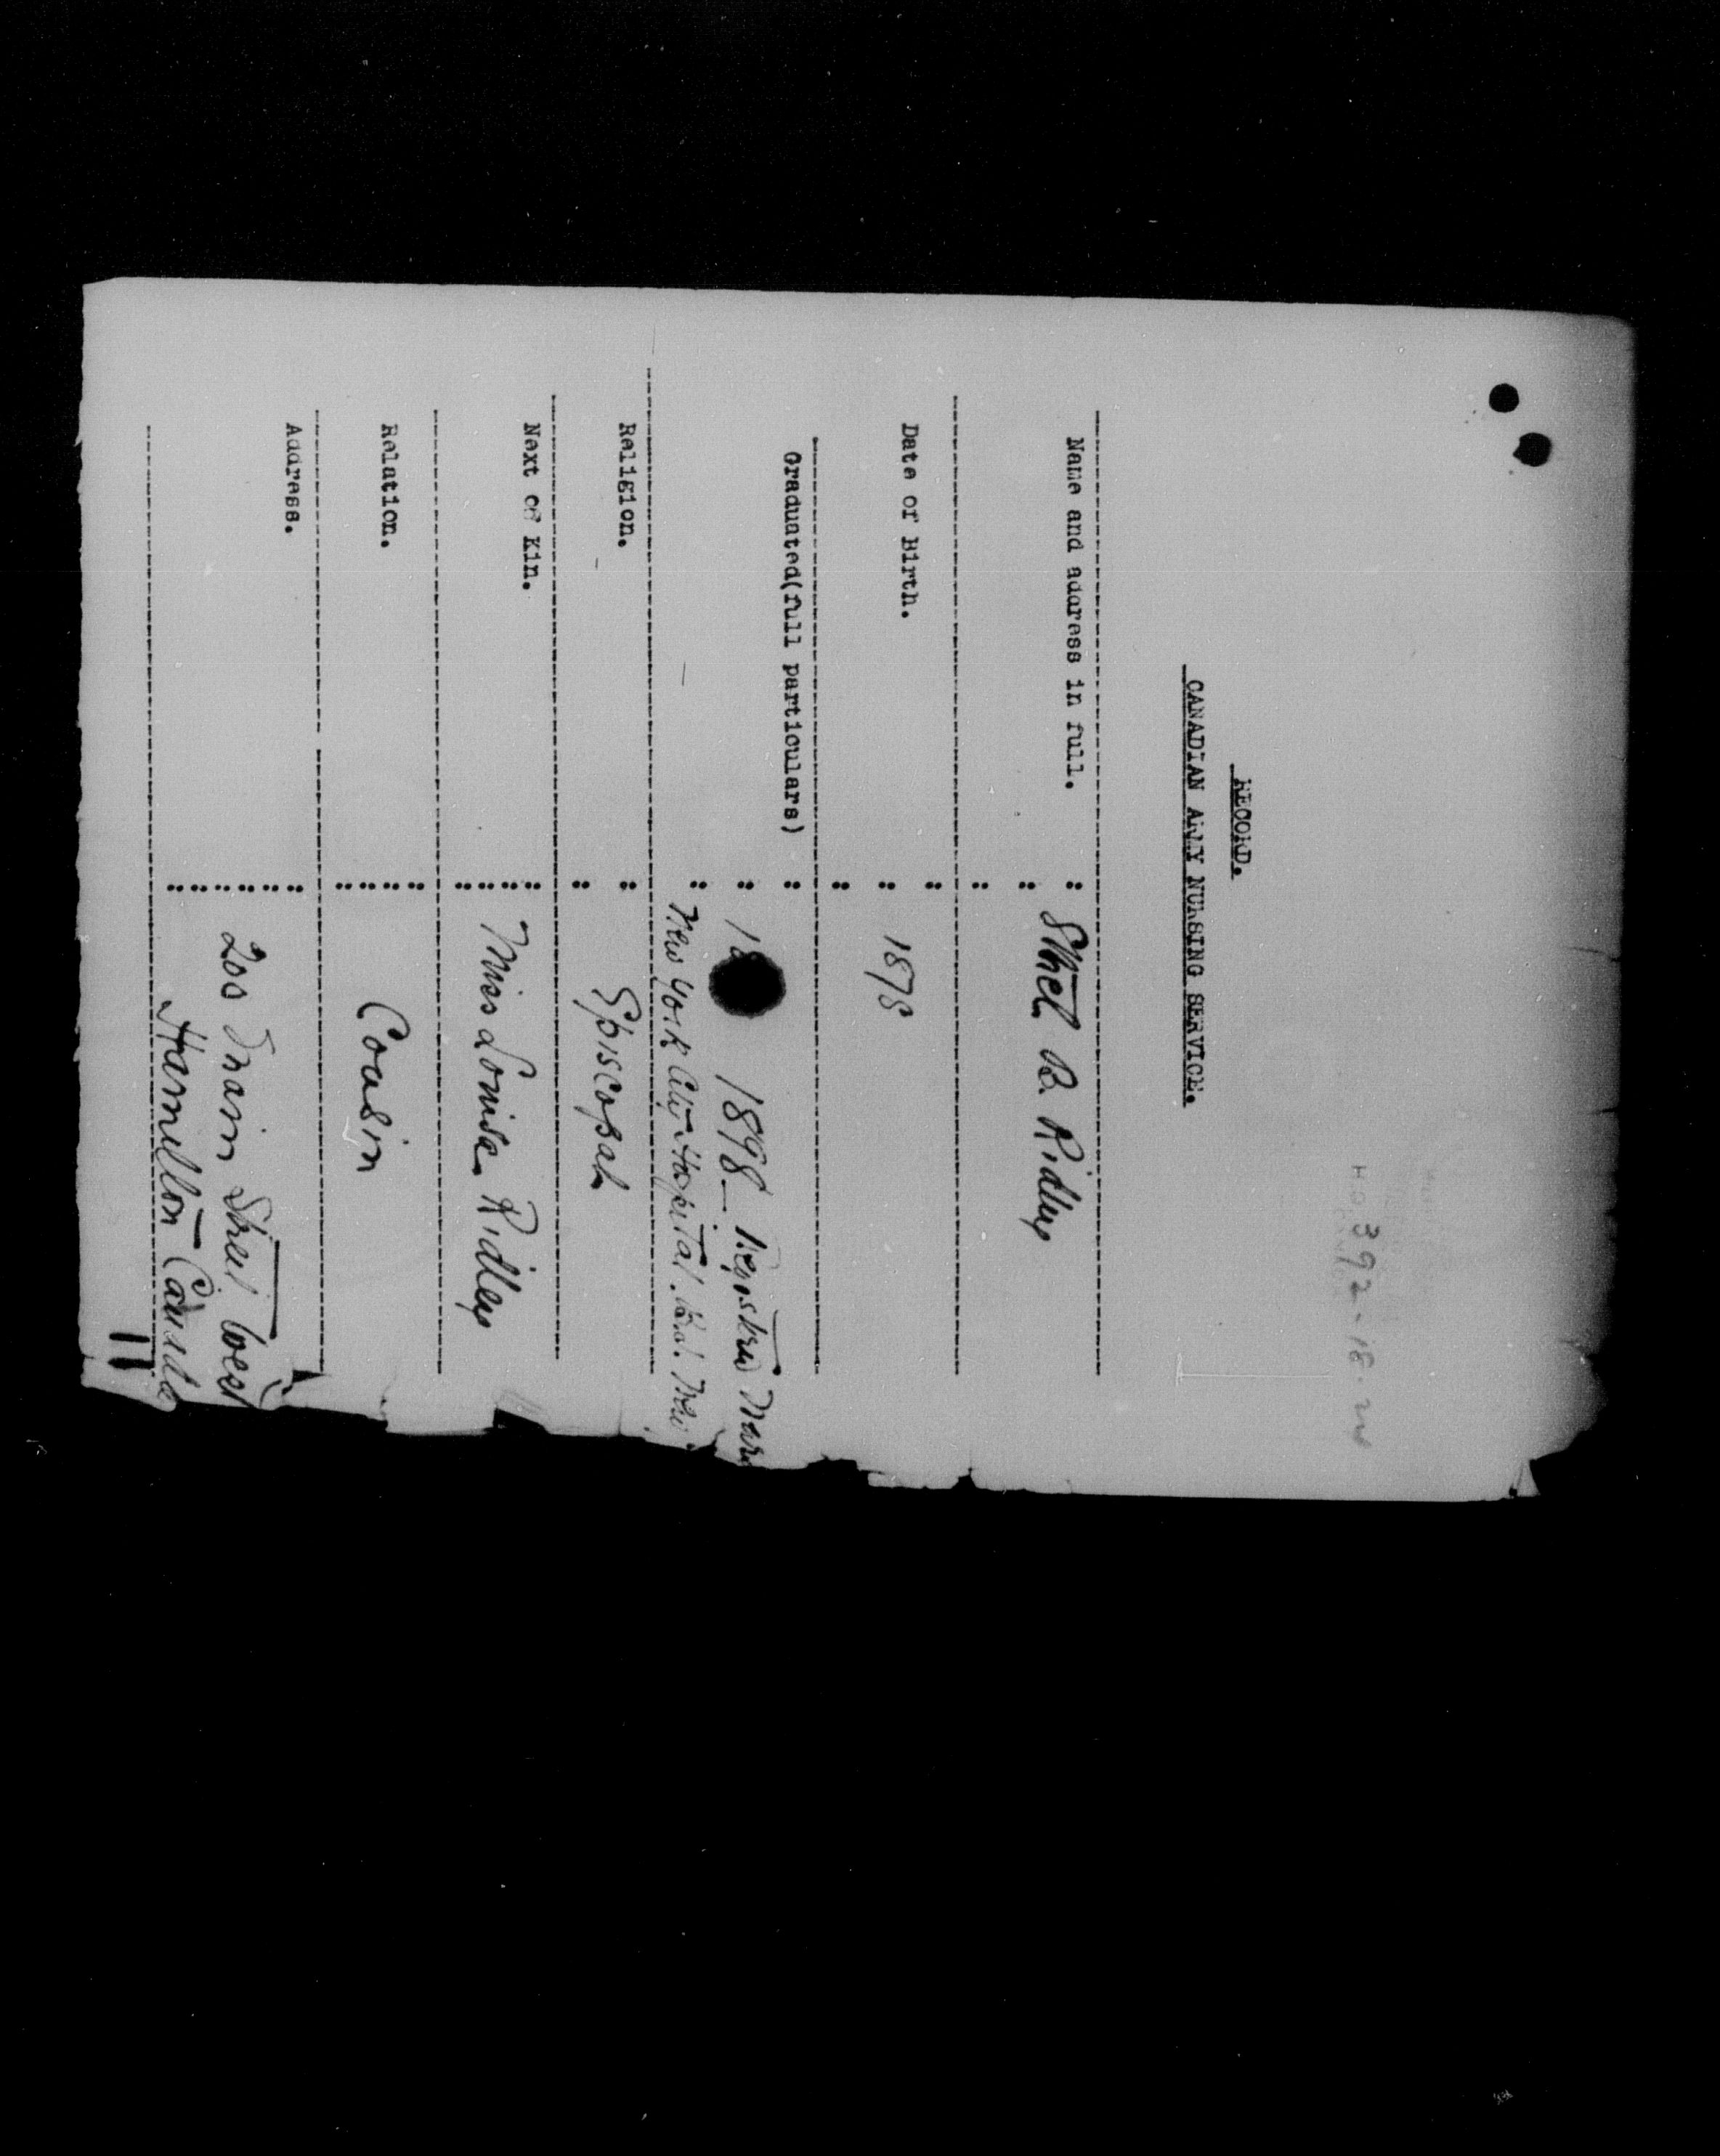 HQ 392-18-2
RECORD.
CANADIAN ARMY NURSING SERVICE.
Name and address in full. : Ethel B. Ridley
Date of Birth. : 1878
Graduated(full particulars) : 18 1898 - Registered
New York City Hospital.
Religion. : Episcopal
Next of Kin. : Miss Louisa Ridley
Relation. : Cousin
Address. : 200 Main Street West
Hamilton Canada